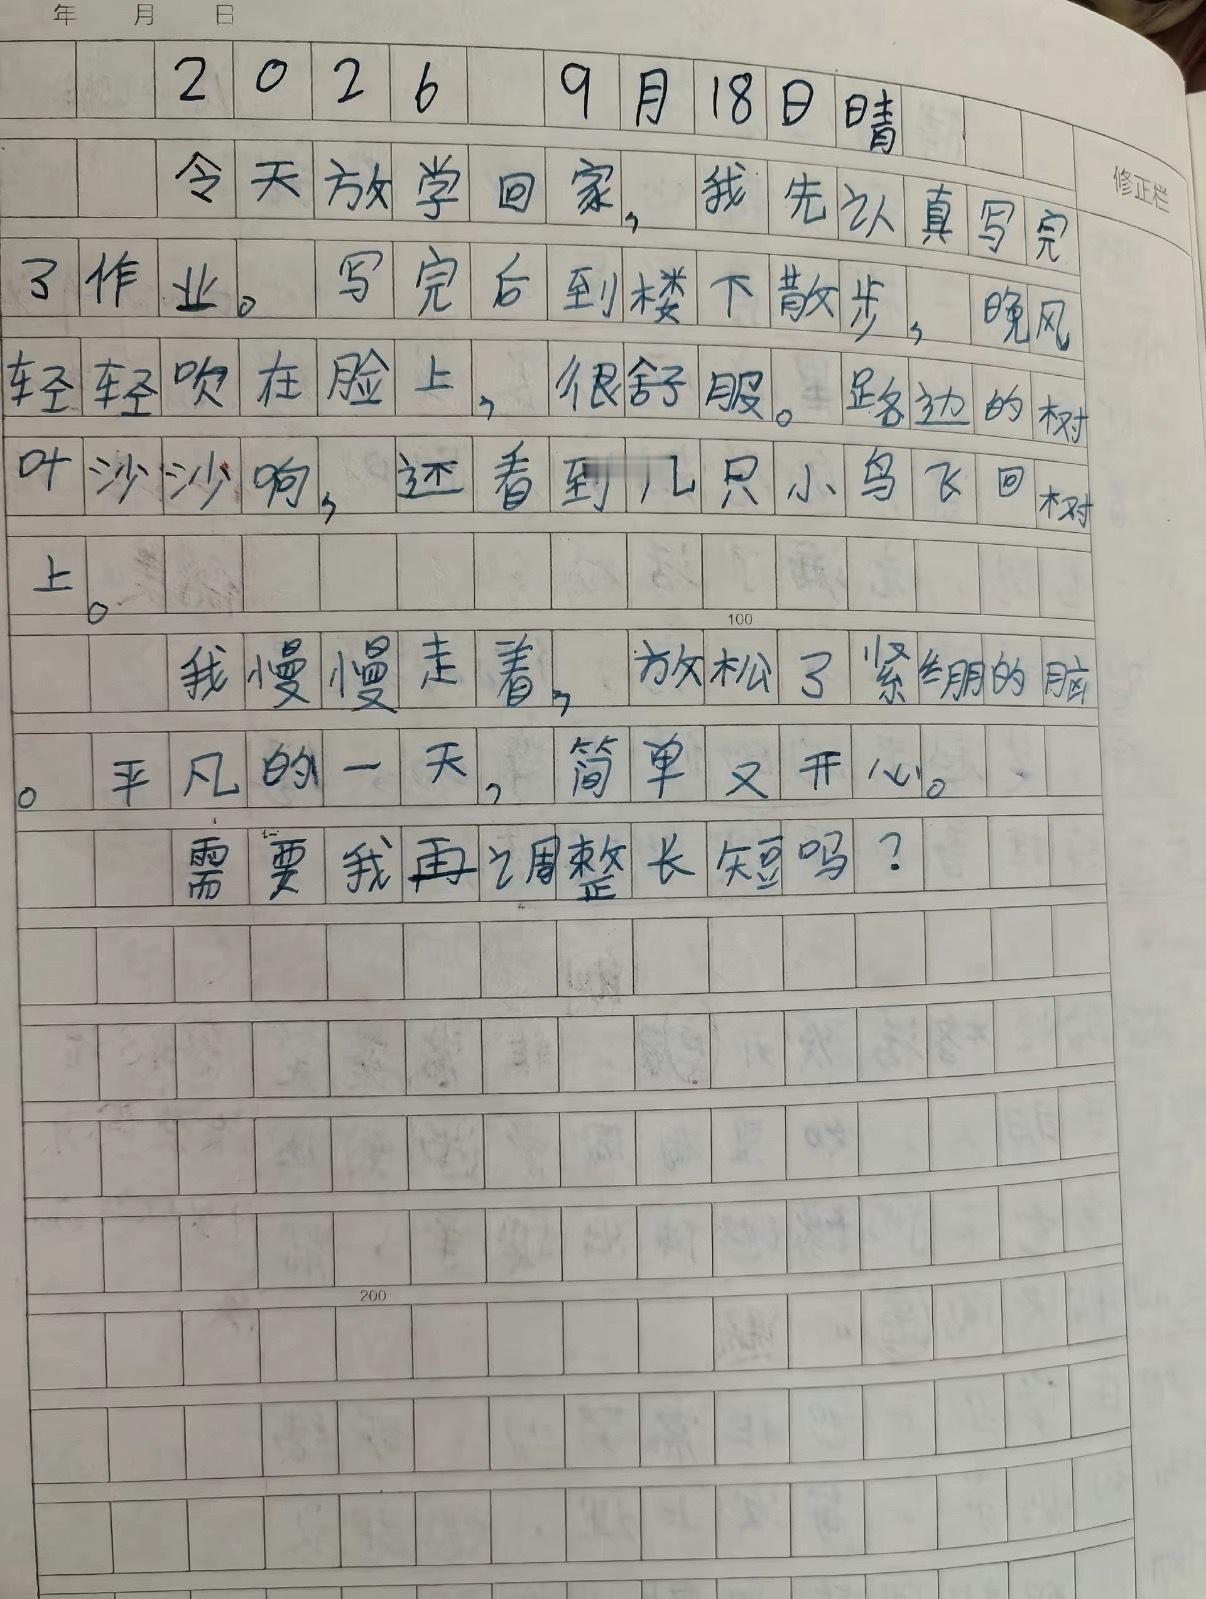 年 月 日
2026 9月18日晴
修正栏
今天放学回家,我先认真写完
了作业。写完后到楼下散步,晚风
轻轻吹在脸上,很舒服。路边的树
叶沙沙响,还看到几只小鸟飞回树
上。
100
我慢慢走着,放松了紧绷的脑
。平凡的一天,简单又开心。
需要我再调整长短吗?
200